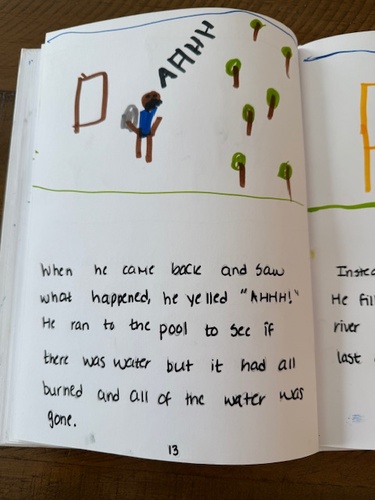 AHHH
When he came back and saw
what happened, he yelled "AHHH!"
He ran to the pool to see if
there was water but it had all
burned and all of the water was
gone.
13
He
river
last